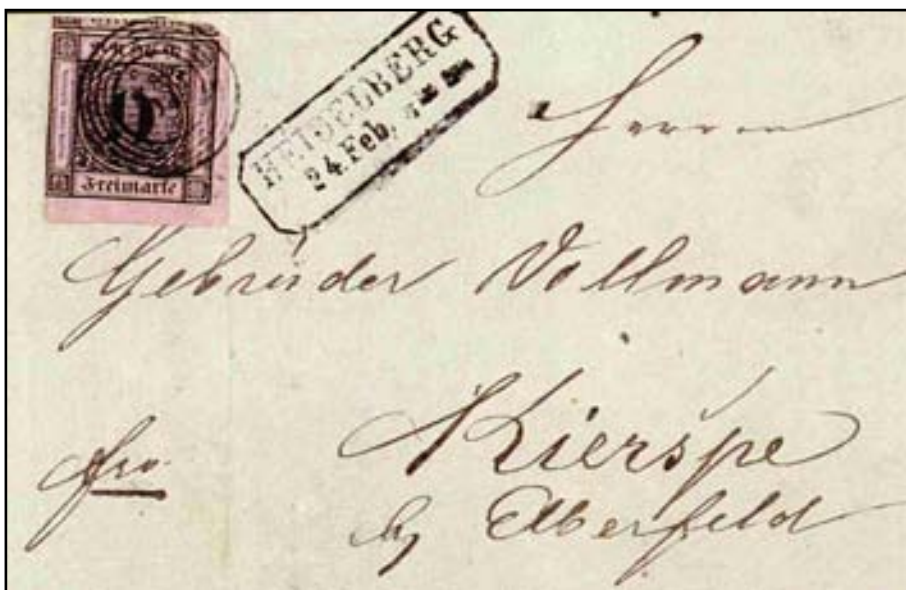 Freimarke
HEIDELBERG
24. Feb.
Herren
Gebrüder Vollmann
Kierspe
fro.
by Elberfeld